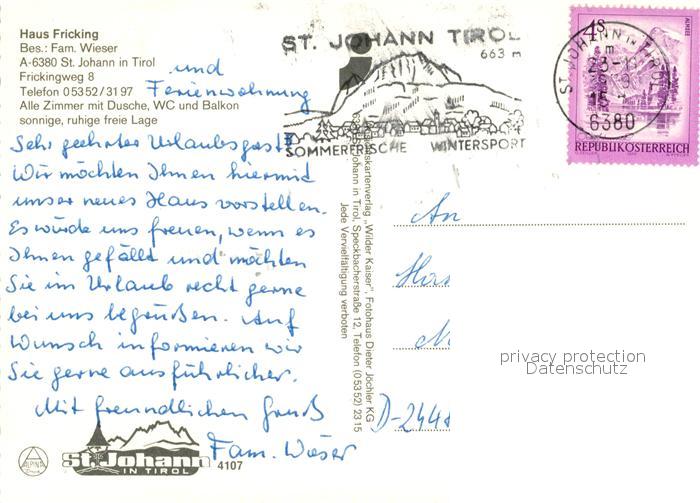 Haus Fricking
Bes.: Fam. Wieser
A-6380 St. Johann in Tirol
Frickingweg 8
Telefon 05352/3197
Alle Zimmer mit Dusche, WC und Balkon
sonnige, ruhige freie Lage
und
Ferienwohnung
Sehr geehrter Urlaubsgast
Wir möchten Ihnen hiermit
unser neues Haus vorstellen.
Es würde uns freuen, wenn es
Ihnen gefällt und möchten
Sie im Urlaub recht gerne
bei uns begrüßen. Auf
Wunsch informieren wir
Sie gerne ausführlicher.
Mit freundlichen Gruß
Fam. Wieser
ALPINA
St. Johann
IN TIROL
4107
ST. JOHANN TIROL
663 m
SOMMERFRISCHE WINTERSPORT
ST. JOHANN in TIROL
6380
4S
ALMSEE
REPUBLIK ÖSTERREICH
skartenverlag "Wilder Kaiser", Fotohaus Dieter Jöchler KG
Johann in Tirol, Speckbacherstraße 12, Telefon (05352) 2315
Jede Vervielfältigung verboten
An
D-244
privacy protection
Datenschutz